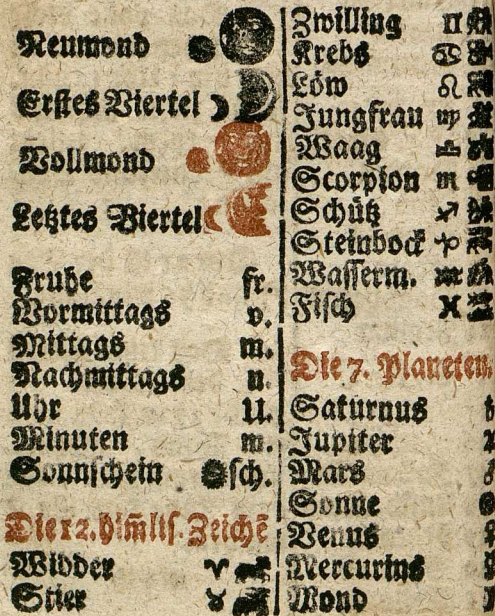 Neumond
Erstes Viertel
Vollmond
Letztes Viertel
Fruhe fr.
Vormittags v.
Mittags m.
Nachmittags n.
Uhr U.
Minuten m.
Sonnschein ☉sch.
Die 12. him̃lis. Zeichẽ
Widder ♈
Stier ♉
Zwilling ♊
Krebs ♋
Löw ♌
Jungfrau ♍
Waag ♎
Scorpion ♏
Schütz ♐
Steinbock ♑
Wasserm. ♒
Fisch ♓
Die 7. Planeten.
Saturnus
Jupiter
Mars
Sonne
Venus
Mercurius
Mond